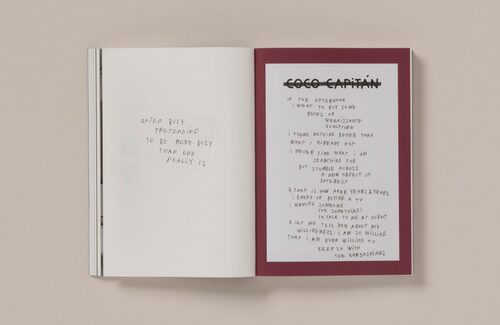 OFTEN BUZY
PRETENDING
TO BE MORE BUZY
THAN ONE
REALLY IZ
COCO CAPITÁN
IN THE AFTERNOON
I WENT TO BUY SOME
BOOKS ON
RENAISSANCE
SCULPTURE
I FOUND NOTHING BETTER THAN
WHAT I ALREADY GOT
I NEVER FIND WHAT I AM
SEARCHING FOR
BUT STUMBLE ACROSS
A NEW OBJECT OF
INTEREST
& THAT IS HOW AFTER YEARS & YEARS
I ENDED UP BUYING A TV
I WANTED SOMEONE
(OR SOMETHING)
TO TALK TO ME AT NIGHT
& LET ME TELL YOU ABOUT MY
WILLINGNESS I AM SO WILLING
THAT I AM EVEN WILLING TO
KEEP UP WITH
THE KARDASHIANS